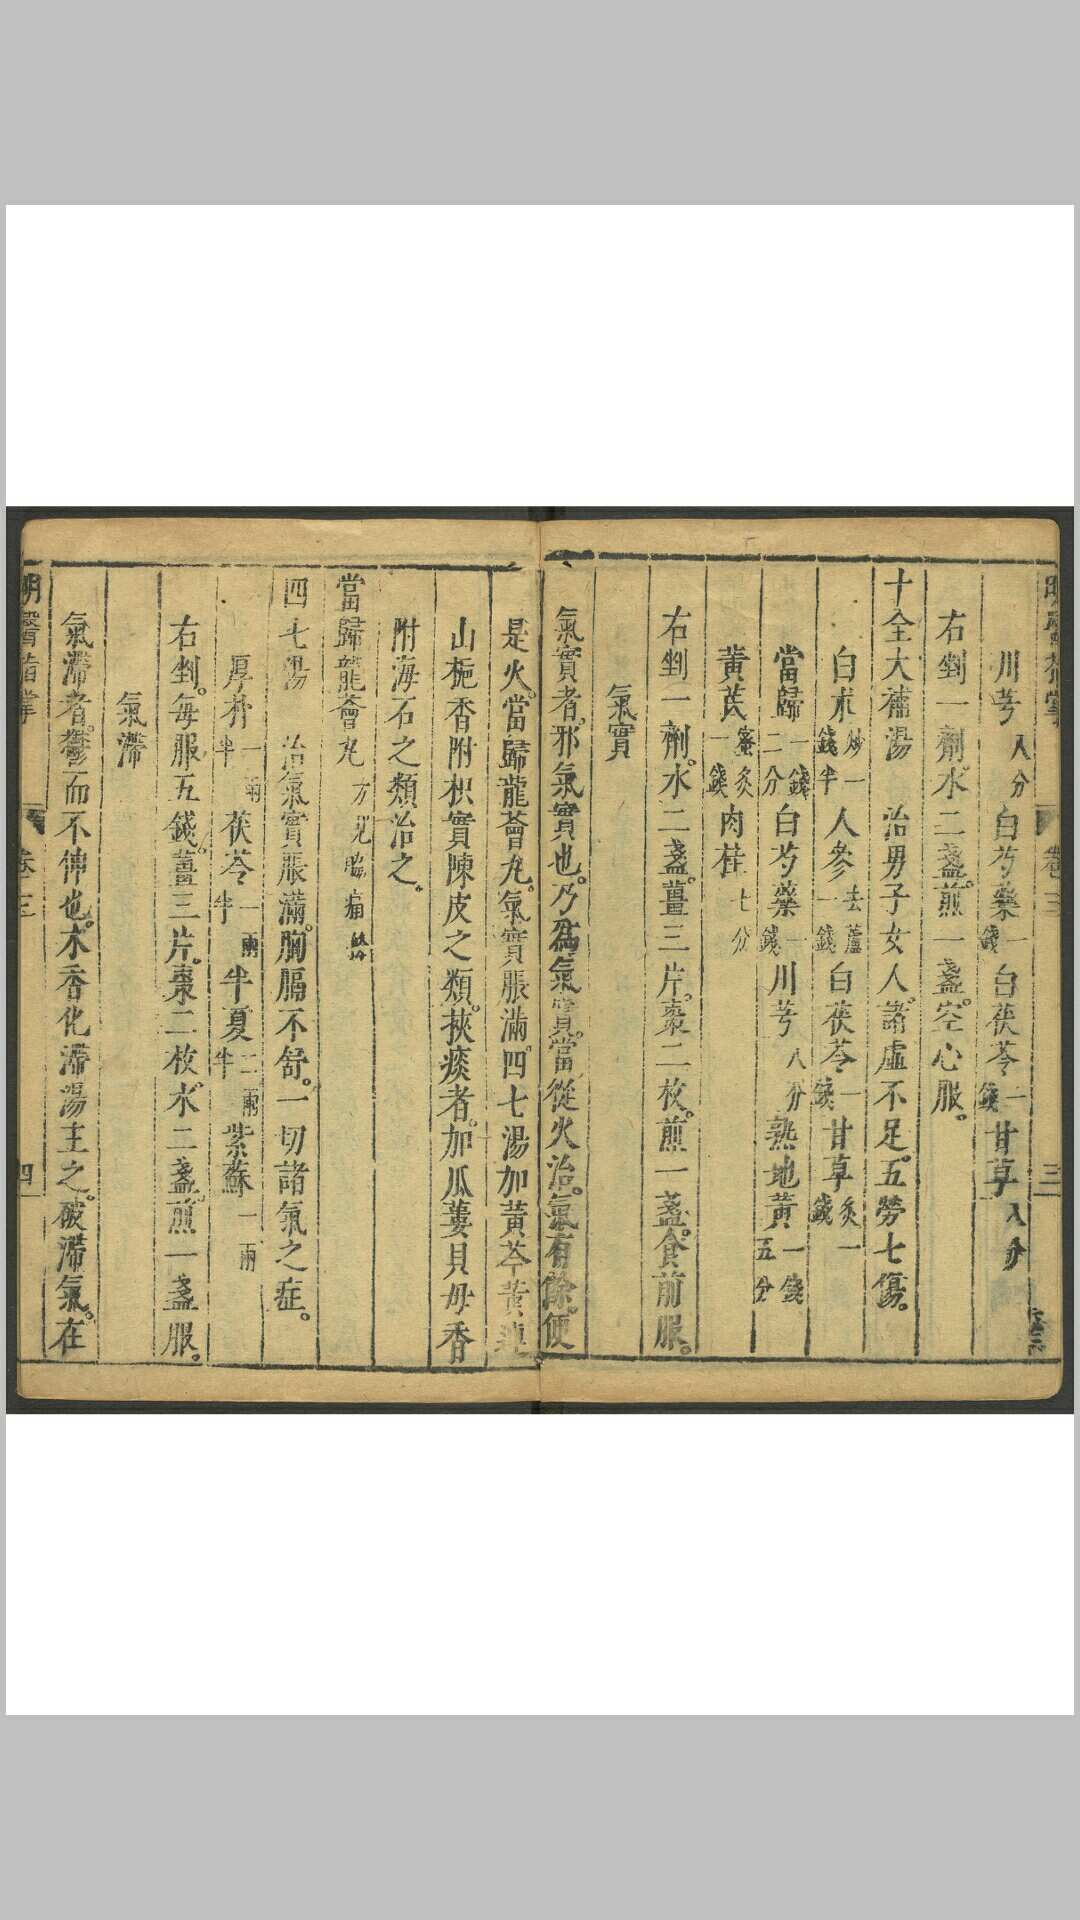 卷三
三
川芎八分白芍藥一錢白茯苓一錢甘草八分
右剉一劑水二盞。煎一盞。空心服。
十全大補湯　治男子女人。諸虛不足。五勞七傷。
白朮炒一錢半人參去蘆一錢白茯苓一錢甘草炙一錢
當歸一錢二分白芍藥一錢川芎八分熟地黃一錢五分
黃芪蜜炙一錢肉桂七分
右剉一劑。水二盞。薑三片。棗二枚。煎一盞。食前服。
氣實
氣實者。邪氣實也。乃為氣實。當從火治。氣有餘。便
是火。當歸龍薈丸。氣實脹滿。四七湯加黃芩黃連
山梔香附枳實陳皮之類。挾痰者。加瓜蔞貝母香
附海石之類治之。
當歸龍薈丸方見脇痛
四七湯　治氣實脹滿。胸膈不舒。一切諸氣之症。
厚朴一兩半茯苓一兩半半夏二兩半紫蘇一兩
右剉。每服五錢。薑三片。棗二枚。水二盞。煎一盞服。
氣滯
氣滯者。鬱而不伸也。木香化滯湯主之。破滯氣。在
明醫指掌
卷三
四